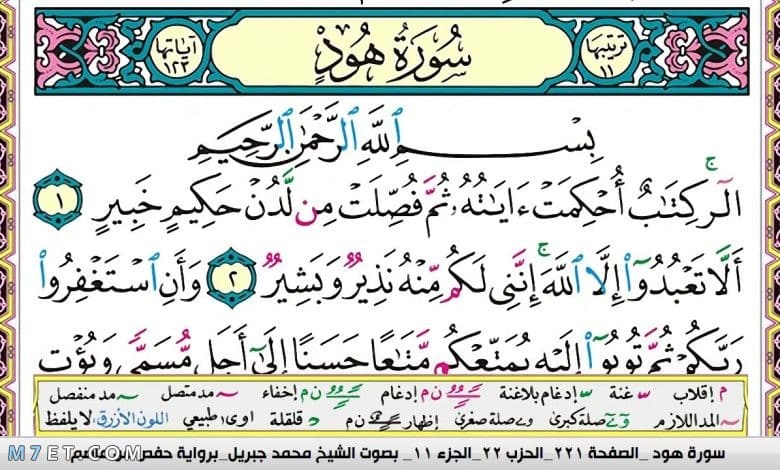 آياتها ١٢٣
سُورَةُ هُودٍ
ترتيبها ١١
بِسْمِ ٱللَّهِ ٱلرَّحْمَٰنِ ٱلرَّحِيمِ
الٓرۚ كِتَٰبٌ أُحْكِمَتْ ءَايَٰتُهُۥ ثُمَّ فُصِّلَتْ مِن لَّدُنْ حَكِيمٍ خَبِيرٍ ١
أَلَّا تَعْبُدُوٓا۟ إِلَّا ٱللَّهَۚ إِنَّنِى لَكُم مِّنْهُ نَذِيرٌ وَبَشِيرٌ ٢ وَأَنِ ٱسْتَغْفِرُوا۟
رَبَّكُمْ ثُمَّ تُوبُوٓا۟ إِلَيْهِ يُمَتِّعْكُم مَّتَٰعًا حَسَنًا إِلَىٰٓ أَجَلٍ مُّسَمًّى وَيُؤْتِ
م إقلاب غنة إدغام بلاغنة ن م إدغام ن م إخفاء مد متصل مد منفصل
المد اللازم صلة كبرى صلة صغرى ن م إظهار اوى طبيعي قلقلة اللون الأزرق لا يلفظ
سورة هود _الصفحة ٢٢١_الحزب ٢٢_الجزء ١١_ بصوت الشيخ محمد جبريل_برواية حفص عن عاصم
M7ET.COM